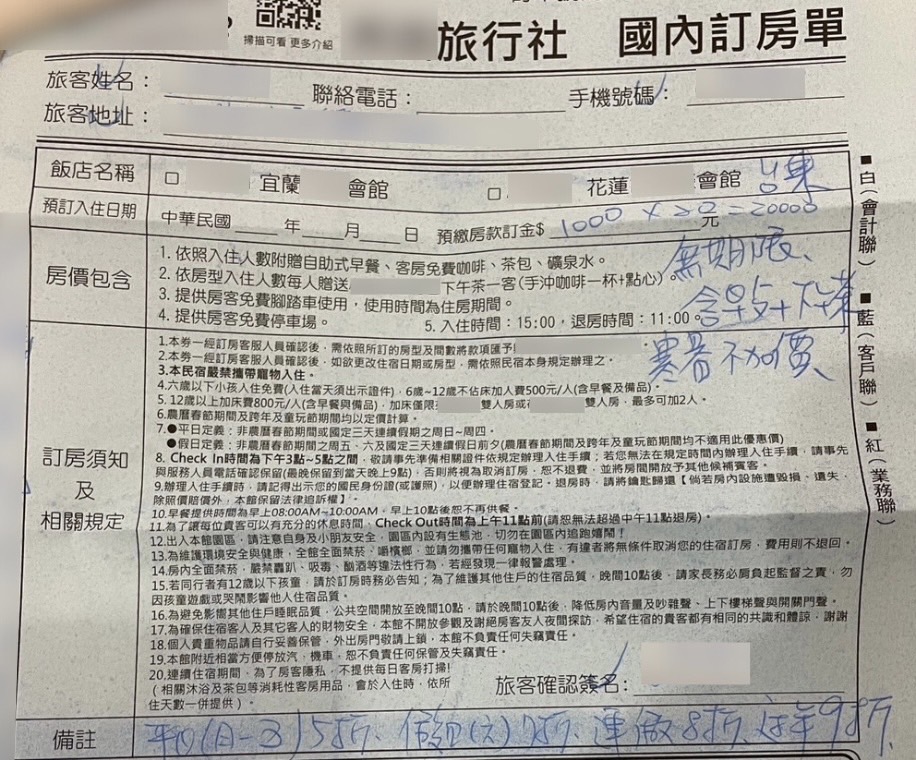 掃描可看 更多介紹
旅行社 國內訂房單
旅客姓名：
聯絡電話：
手機號碼：
旅客地址：
飯店名稱
□ 宜蘭 會館 □ 花蓮 會館 台東
預訂入住日期
中華民國 年 月 日 預繳房款訂金$ 1000 × 20 = 20000 元
房價包含
1. 依照入住人數附贈自助式早餐、客房免費咖啡、茶包、礦泉水。
2. 依房型入住人數每人贈送 下午茶一客(手沖咖啡一杯+點心)
3. 提供房客免費腳踏車使用，使用時間為住房期間。
4. 提供房客免費停車場。 5. 入住時間：15:00，退房時間：11:00。
無期限、
含早餐+下午茶
寒暑不加價、
訂房須知
及
相關規定
1.本券一經訂房客服人員確認後，需依照所訂的房型及間數將款項匯予!
2.本券一經訂房客服人員確認後，如欲更改住宿日期或房型，需依照民宿本身規定辦理之。
3.本民宿嚴禁攜帶寵物入住。
4.六歲以下小孩入住免費(入住當天須出示證件)，6歲~12歲不佔床加人費500元/人(含早餐及備品)。
5. 12歲以上加床費800元/人(含早餐與備品)，加床僅限 雙人房或 雙人房，最多可加2人。
6.農曆春節期間及跨年及童玩節期間均以定價計算。
7.●平日定義：非農曆春節期間或國定三天連續假期之周日~周四。
●假日定義：非農曆春節期間之周五、六及國定三天連續假日前夕(農曆春節期間及跨年及童玩節期間均不適用此優惠價)
8. Check In時間為下午3點~5點之間，敬請事先準備相關證件依規定辦理入住手續；若您無法在規定時間內辦理入住手續，請事先
與服務人員電話確認保留(最晚保留到當天晚上9點)，否則將視為取消訂房，恕不退費，並將房間開放予其他候補賓客。
9.辦理入住手續時，請記得出示您的國民身份證(或護照)，以便辦理住宿登記。退房時，請將鑰匙歸還【倘若房內設施遭毀損、遺失，
除照價賠償外，本館保留法律追訴權】。
10.早餐提供時間為早上08:00AM~10:00AM，早上10點後恕不再供餐。
11.為了讓每位貴客可以有充分的休息時間，Check Out時間為上午11點前(請恕無法超過中午11點退房)。
12.出入本館園區，請注意自身及小朋友安全，園區內設有生態池，切勿在園區內追跑嬉鬧！
13.為維護環境安全與健康，全館全面禁菸、嚼檳榔，並請勿攜帶任何寵物入住，有違者將無條件取消您的住宿訂房，費用則不退回。
14.房內全面禁菸，嚴禁轟趴、吸毒、酗酒等違法性行為，若經發現一律報警處理。
15.若同行者有12歲以下孩童，請於訂房時務必告知；為了維護其他住戶的住宿品質，晚間10點後，請家長務必肩負起監督之責，勿
因孩童遊戲或哭鬧影響他人住宿品質。
16.為避免影響其他住戶睡眠品質，公共空間開放至晚間10點，請於晚間10點後，降低房內音量及吵雜聲、上下樓梯聲與開關門聲。
17.為確保住宿客人及其它客人的財物安全，本館不開放參觀及謝絕房客友人夜間探訪，希望住宿的貴客都有相同的共識和體諒，謝謝
18.個人貴重物品請自行妥善保管，外出房門敬請上鎖，本館不負責任何失竊責任。
19.本館附近相當方便停放汽、機車，恕不負責任何保管及失竊責任。
20.連續住宿期間，為了房客隱私，不提供每日客房打掃!
(相關沐浴及茶包等消耗性客房用品，會於入住時，依所
住天數一併提供)。
旅客確認簽名：
備註
平日(日-五)5折、假日(六)7折、連假8折、過年9折
■白(會計聯)
■藍(客戶聯)
●紅(業務聯)